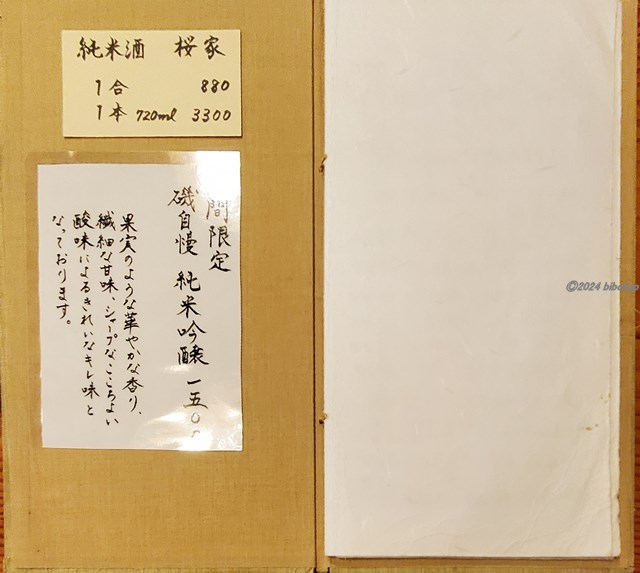 純米酒 桜家
1合 880
1本 720ml 3300
間限定
磯自慢 純米吟醸 一五〇〇
果実のような華やかな香り、
繊細な甘味、シャープなここちよい
酸味によるきれいなキレ味と
なっております。